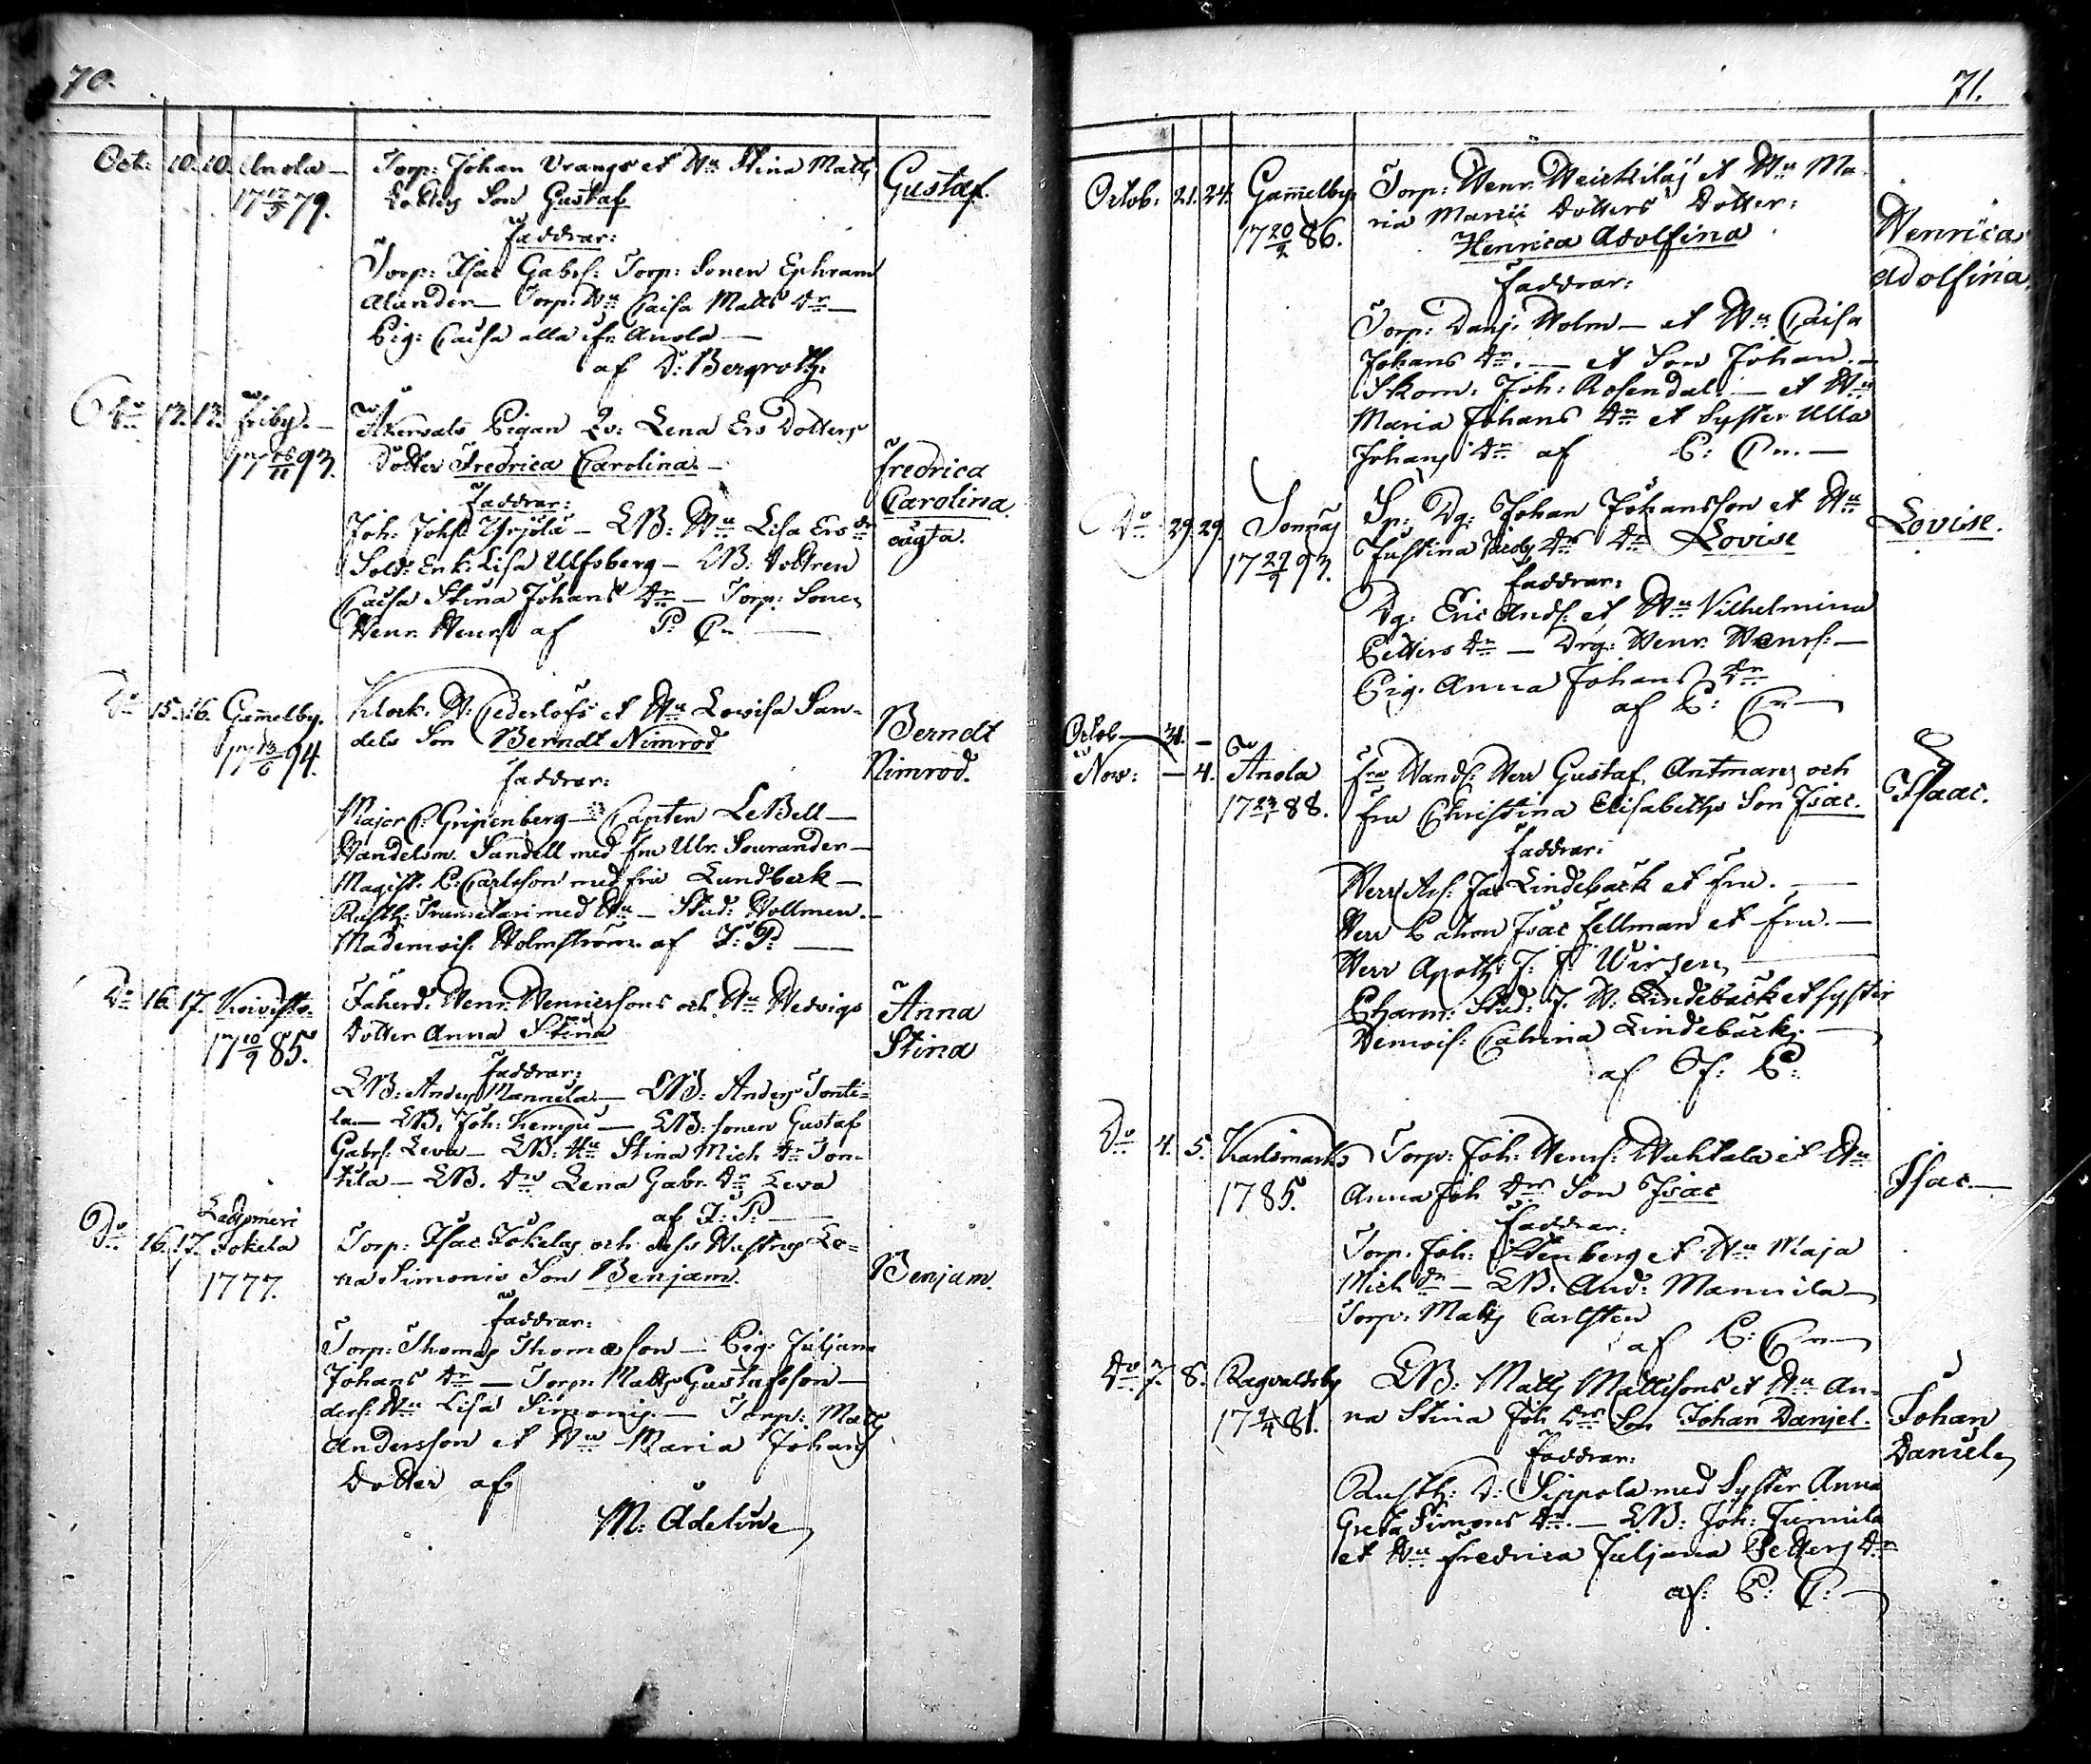 70.
Oct: 10. 10. Anola —
17 12/5 79.
Torp: Johan Vrangs et Hu Stina Matts
Dotters Son Gustaf
Gustaf.
faddrar:
Torp: Isac Gabrs: Torp: Sonen Ephram
Alander — Torp: Hu Caisa Matts dr —
Pig: Caisa alla ifr. Anola —
af D: Bergroth.
Do 12. 13. Friby. —
93.
Pigan Lena Ers Dotters
Dotter Fredrica Carolina. —
Fredrica
Carolina
faddrar:
Joh: Johs: Yrjölä — LB: Hu Lisa Ers dr
Sold: Enk: Lisa Ulfsberg — LB: Dottren
Caisa Stina Johans dr — Torp: Sonen
Henr. Henrs: af P: Cn —
oägta.
Do 15. 16. Gamelby.
17 13/6 94.
Klock. H: Cederlöfs et Hu Lowisa San-
dels Son Berndt Nimrod
Berndt
Nimrod.
faddrar:
Major C: Gripenberg — Capten LeBell —
Handelsm. Sandell med fru Ulr. Sourander —
Magist. C: Carlsson med fru Lundbeck —
Rusth: med Hu — Stud: Hollmen. —
Mademois: Holmström af I: P: —
Do 16. 17. Koivisto.
17 10/9 85.
Faherd. Henr. Henricssons och Hu Hedvigs
Dotter Anna Stina
Anna
Stina
faddrar:
LB: Anders Mannila — LB: Anders Tonti-
la — LB: Joh: Kemppi — LB: sonen Gustaf
Gabrs: Leva — LB: Hu Stina Mich dr Ton-
tila — LB. dr Lena Gabr. dr Leva
af I: P: —
Do 16. 17. Jokela
1777.
Torp: Isac Jokelas och dess Hustrus Le-
na Simonis Son Benjam.
Benjam.
faddrar:
Torp: Thomas Thomasson — Pig: Juljana
Johans dr — Torp: Matts Gustafsson —
dess Hu Lisa Simonis. — Torp: Matts
Andersson et Hu Maria Johans
Dotter af
M: Adelin
71.
Octob: 21. 24. Gamelby.
17 20/2 86.
Torp: Henr. et Hu Ma-
ria Dotters Dotter:
Henrica Adolfina
Henrica
Adolfina.
faddrar:
Torp: Danj. Holm — et Hu Caisa
Johans dr. — et Son Johan. —
Skom: Joh: Rosendal: — et Hu
Maria Johans dr et Syster Ulla
Johans dr af P: Cn. —
Do 29. 29. Sonnäs
17 29/9 93.
Sp: Dg: Johan Johansson et Hu
Justina Jacobs drs dr Lovise
Lovise.
faddrar:
Dg: Eric Ands: et Hu Vilhelmina
Petters dr — Drg: Henr. Henrs: —
Pig. Anna Johans dr
af P: Cn —
Octob — 31. —
Nov: — 4. Anola
17 23/1 88.
Handl: Herr Gustaf Antmans och
fru Christina Elisabeths Son Isac.
Isaac.
faddrar:
Herr Ass: Jac Lindebäck et fru. —
Herr Patron Isac Fellman et fru. —
Herr Apoth: J: F: Wirzen —
Pharm: Stud: J. H: Lindebäck et syster
Demois: Catrina Lindebäck. —
af P:
Do 4. 5. Karlsmarks
1785.
Torp: Joh: Henrs: Huhtala et Hu
Anna Joh drs Son Isac
Isac. —
faddrar:
Torp: Joh: Stenberg et Hu Maja
Mich dr — LB. And: Mannila —
Torp: Matts Carlsten
af P: Cn —
Do 7. 8. Ragvaldsby
17 4 81.
LB: Matts Mattssons et Hu An-
na Stina Joh drs Son Johan Danjel.
Johan
Daniel
faddrar:
Rusth: D: Sippola med Syster Anna
Greta Simons dr. — LB: Joh: Junnila
et Hu Fredrica Juljana Petters dr
af: P: C: —